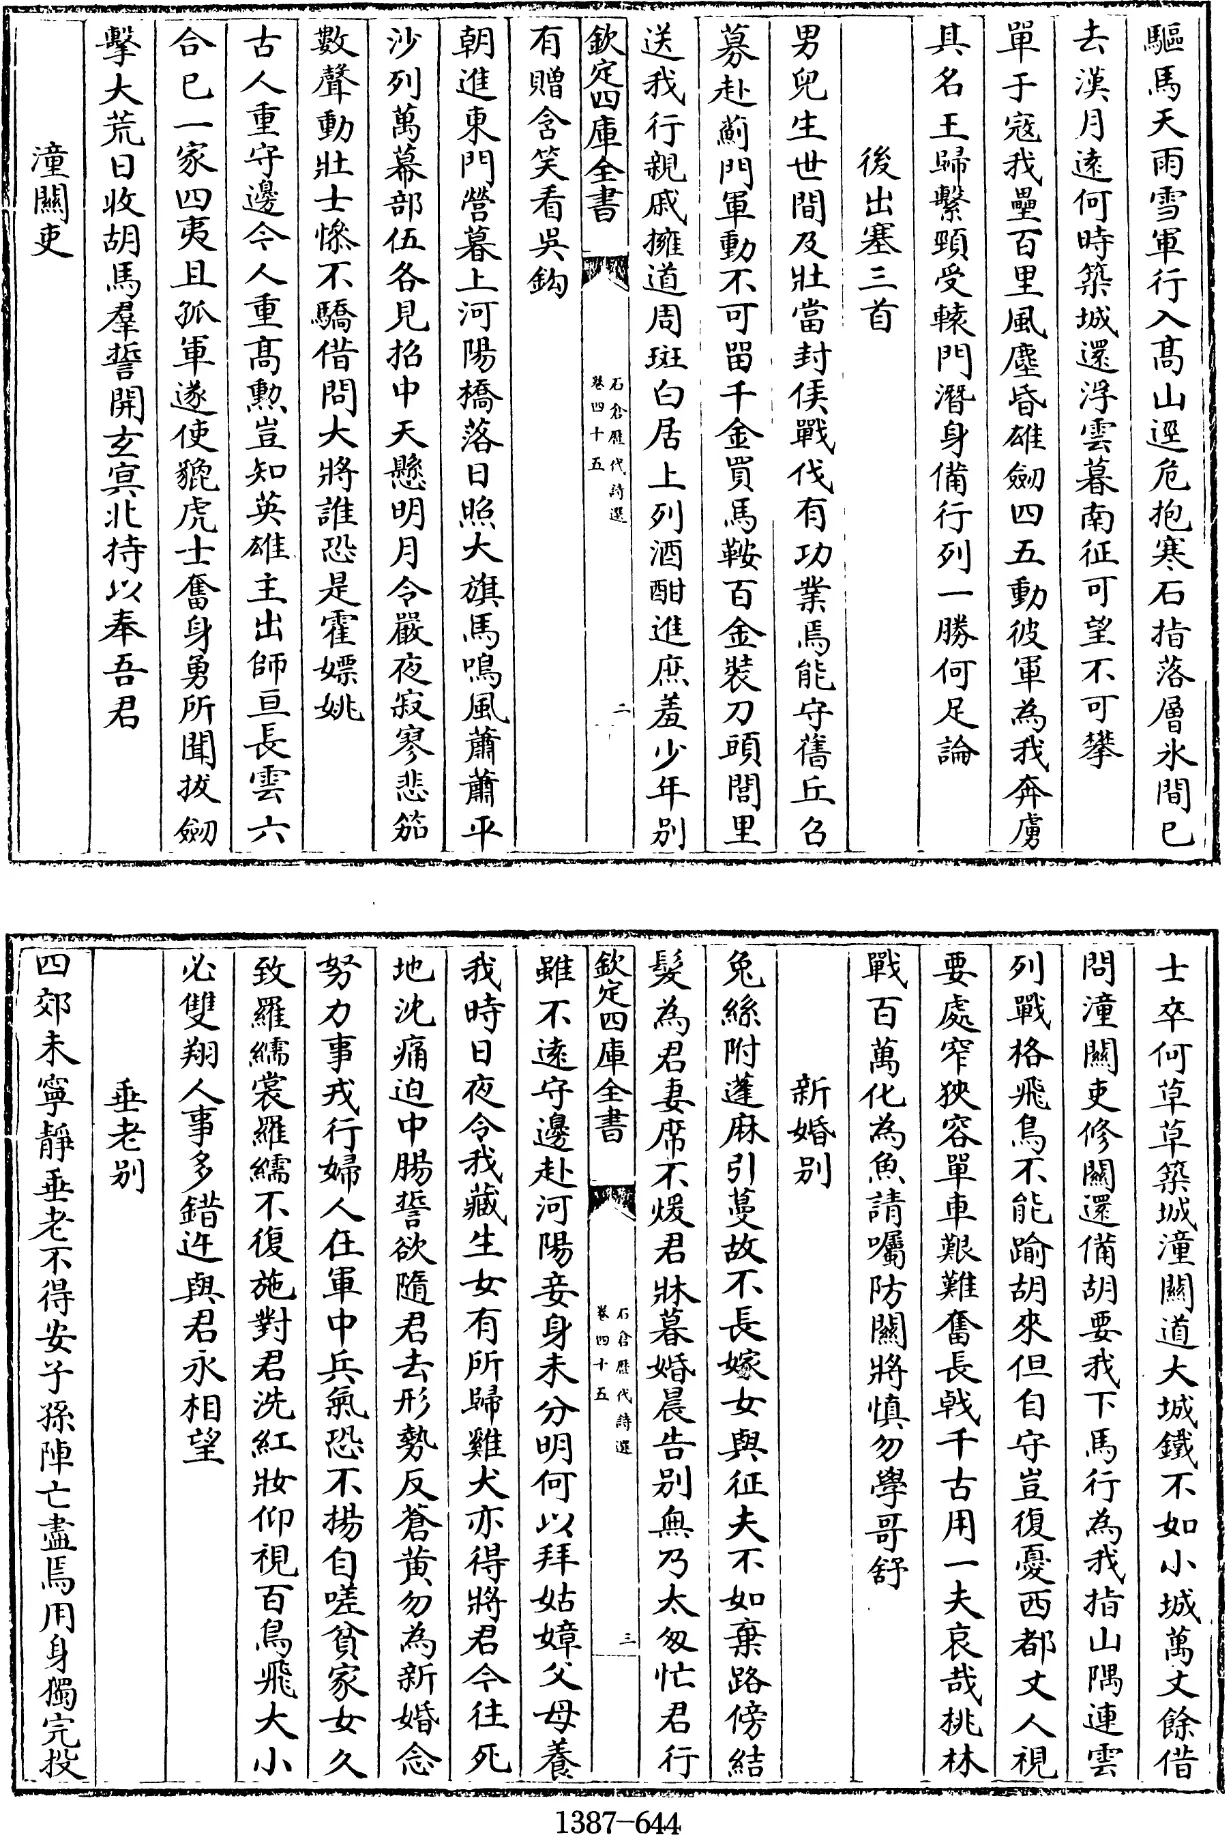 驅馬天雨雪軍行入髙山逕危抱寒石指落層氷間已
去漢月逺何時築城還浮雲暮南征可望不可攀
單于寇我壘百里風塵昏雄劔四五動彼軍為我奔虜
其名王歸繫頸受轅門潛身備行列一勝何足論
後出塞三首
男兒生世間及壯當封侯戰伐有功業焉能守舊丘召
募赴薊門軍動不可留千金買馬鞍百金裝刀頭閭里
送我行親戚擁道周斑白居上列酒酣進庶羞少年别
欽定四庫全書
石倉歴代詩選
卷四十五
二
有贈含笑看吳鈎
朝進東門營暮上河陽橋落日照大旗馬鳴風蕭蕭平
沙列萬幕部伍各見招中天懸明月令嚴夜寂寥悲笳
數聲動壯士慘不驕借問大將誰恐是霍嫖姚
古人重守邊今人重髙勲豈知英雄主出師亘長雲六
合已一家四夷且孤軍遂使貔虎士奮身勇所聞拔劔
擊大荒日收胡馬羣誓開玄冥北持以奉吾君
潼關吏
士卒何草草築城潼關道大城鐵不如小城萬丈餘借
問潼關吏修關還備胡要我下馬行為我指山隅連雲
列戰格飛鳥不能踰胡來但自守豈復憂西都丈人視
要處窄狹容單車艱難奮長戟千古用一夫哀哉桃林
戰百萬化為魚請囑防關將慎勿學哥舒
新婚别
兔絲附蓬麻引蔓故不長嫁女與征夫不如棄路傍結
髮為君妻席不煖君牀暮婚晨告别無乃太匆忙君行
欽定四庫全書
石倉歴代詩選
卷四十五
三
雖不逺守邊赴河陽妾身未分明何以拜姑嫜父母養
我時日夜令我藏生女有所歸雞犬亦得將君今往死
地沈痛迫中腸誓欲隨君去形勢反蒼黄勿為新婚念
努力事戎行婦人在軍中兵氣恐不揚自嗟貧家女久
致羅繻裳羅繻不復施對君洗紅妝仰視百鳥飛大小
必雙翔人事多錯迕與君永相望
垂老别
四郊未寧靜垂老不得安子孫陣亡盡焉用身獨完投
1387-644